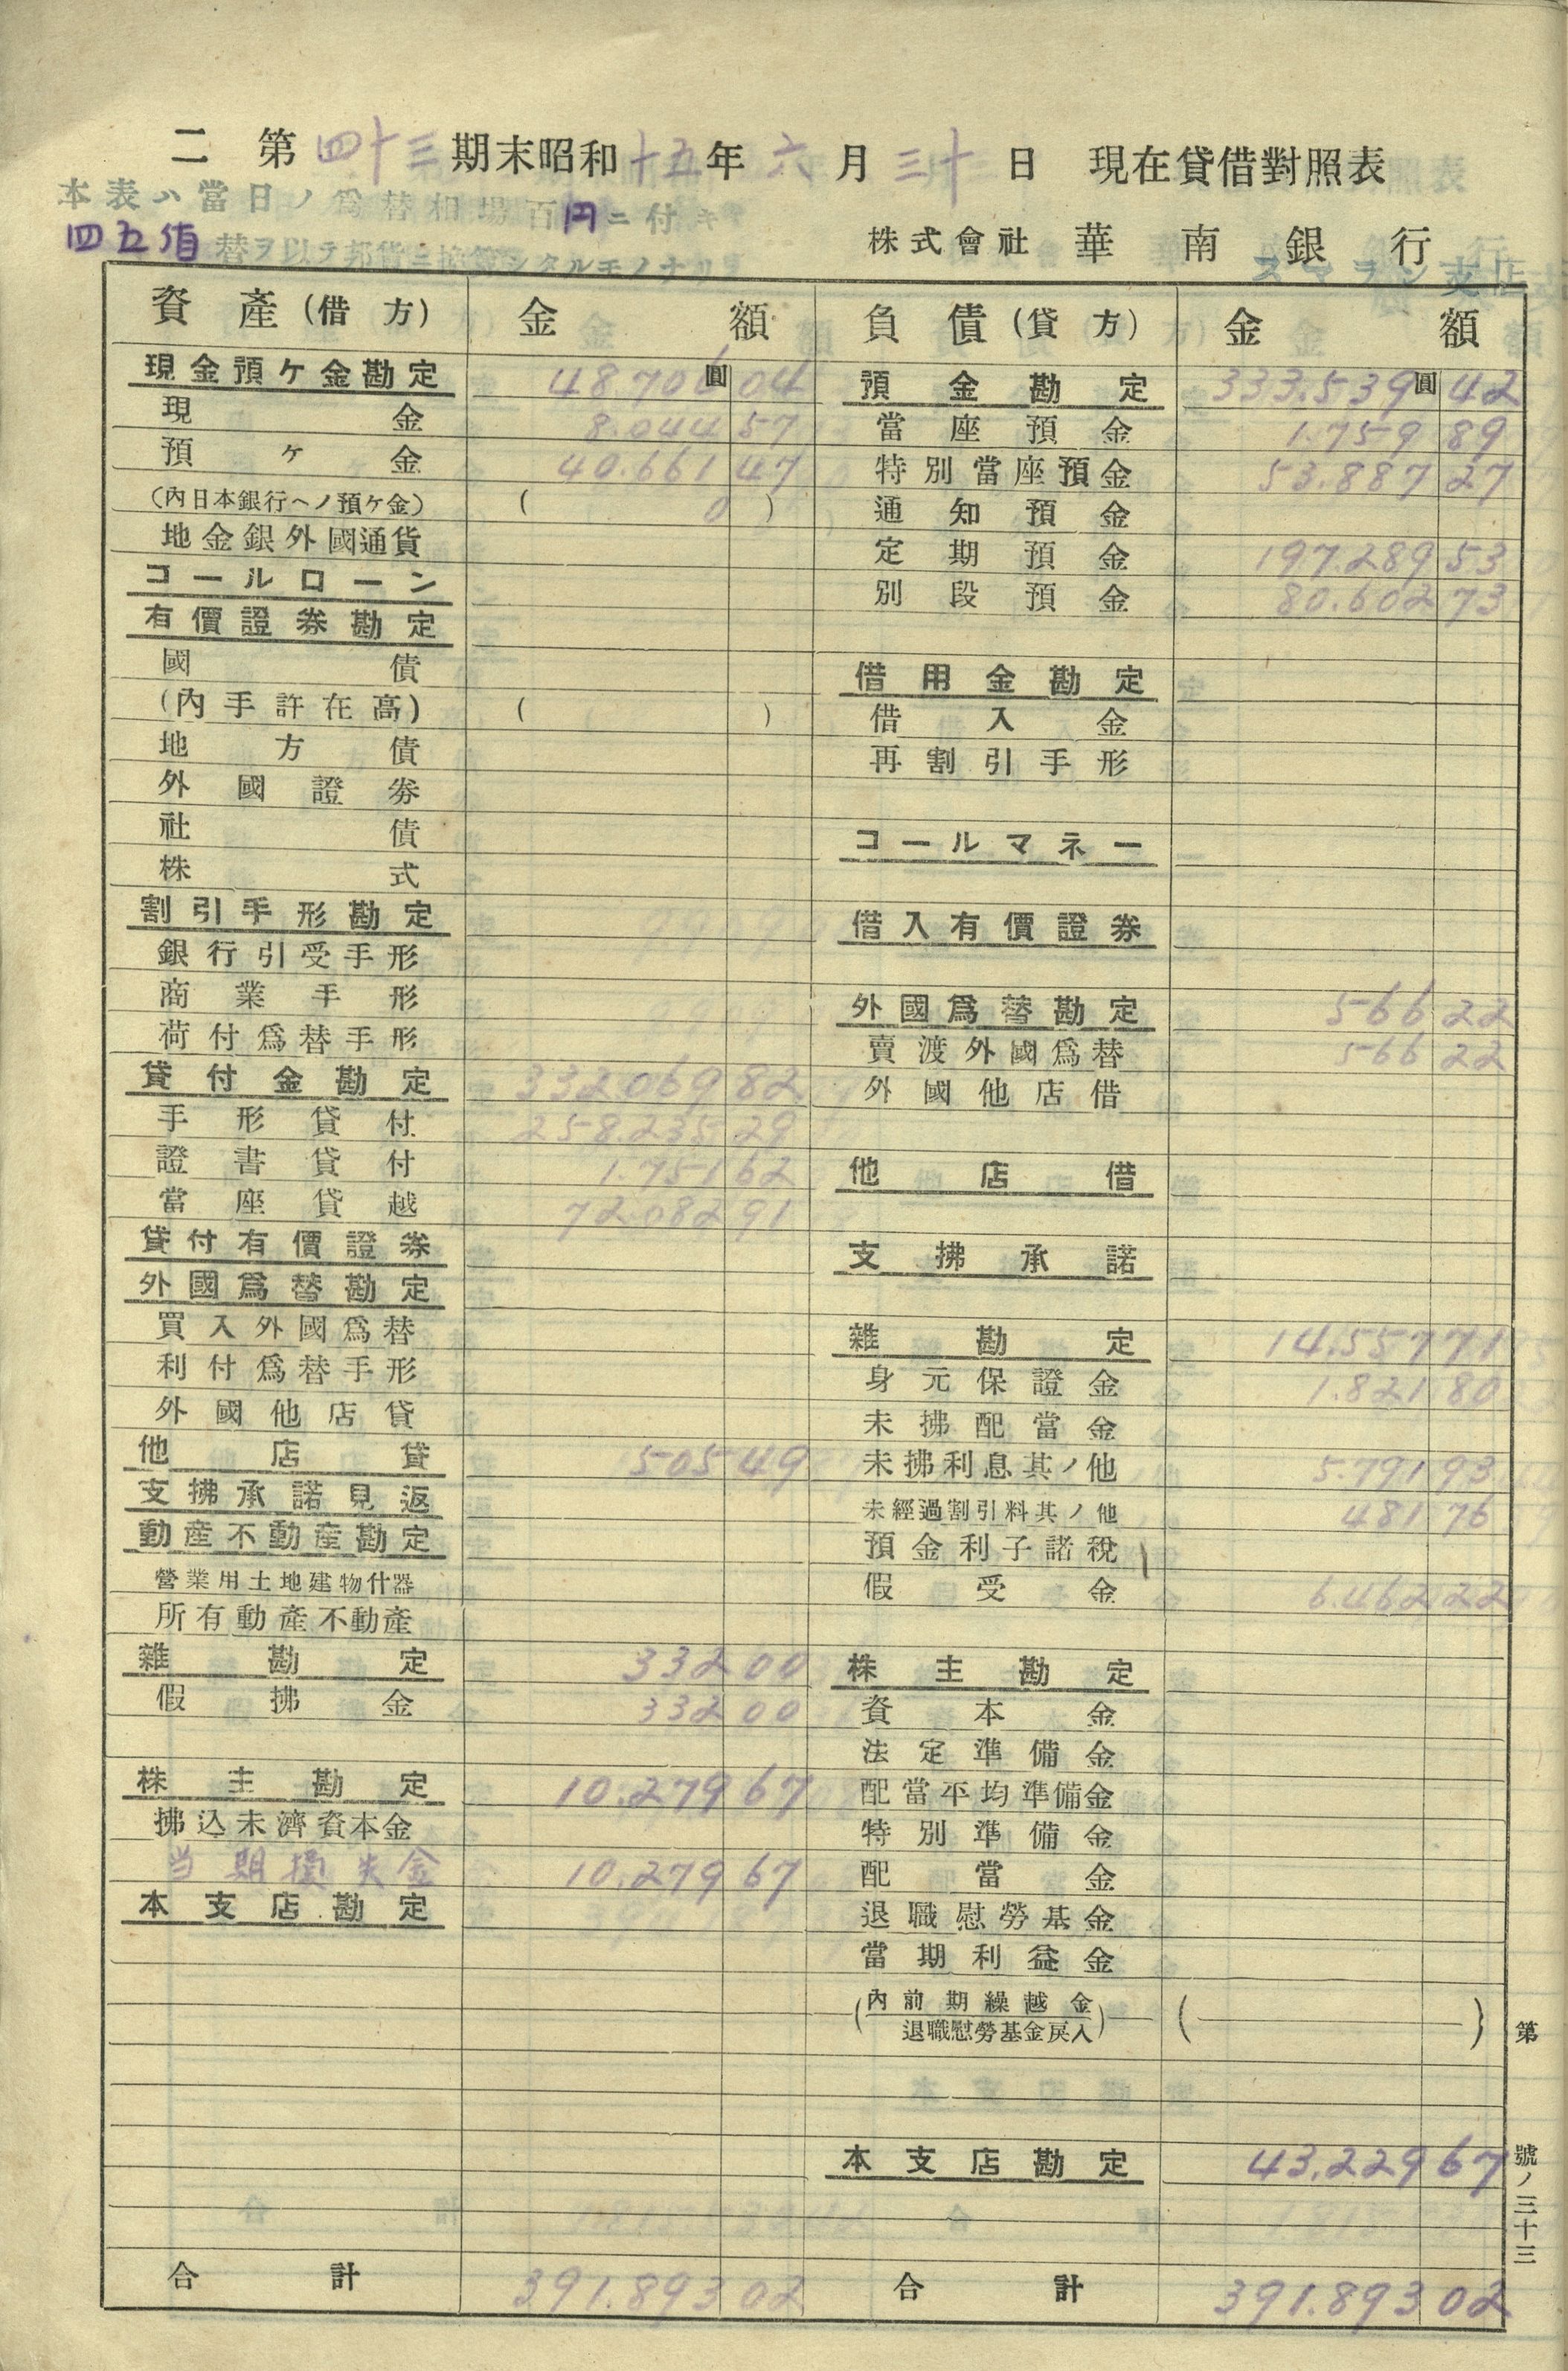 二 第四十三期末昭和十五年六月三十日 現在貸借對照表
本表ハ當日ノ爲替相場百円ニ付キ
四五 替ヲ以テ邦貨ニ換算シタルモノナリ
株式會社 華南銀行
スマラン支店
資產(借方) 金額 負債(貸方) 金額
現金預ケ金勘定 48.706圓04
現金 8.044 57
預ケ金 40.661 47
(內日本銀行ヘノ預ケ金) ( 0 )
地金銀外國通貨
コールローン
有價證券勘定
國債
(內手許在高) ( )
地方債
外國證券
社債
株式
割引手形勘定
銀行引受手形
商業手形
荷付爲替手形
貸付金勘定 332.069 82
手形貸付 258.235 29
證書貸付 1.751 62
當座貸越 72.082 91
貸付有價證券
外國爲替勘定
買入外國爲替
利付爲替手形
外國他店貸
他店貸 505 49
支拂承諾見返
動產不動產勘定
營業用土地建物什器
所有動產不動產
雜勘定 332 00
假拂金 332 00
株主勘定 10.279 67
拂込未濟資本金
当期損失金 10.279 67
本支店勘定
合計 391.893 02
預金勘定 333.539圓42
當座預金 1.759 89
特別當座預金 53.887 27
通知預金
定期預金 197.289 53
別段預金 80.602 73
借用金勘定
借入金
再割引手形
コールマネー
借入有價證券
外國爲替勘定 566 22
賣渡外國爲替 566 22
外國他店借
他店借
支拂承諾
雜勘定 14.557 71
身元保證金 1.821 80
未拂配當金
未拂利息其ノ他 5.791 93
未經過割引料其ノ他 481 76
預金利子諸稅
假受金 6.462 22
株主勘定
資本金
法定準備金
配當平均準備金
特別準備金
配當金
退職慰勞基金
當期利益金
(內前期繰越金
退職慰勞基金戾入) ( )
本支店勘定 43.229 67
合計 391.893 02
第 號ノ三十三